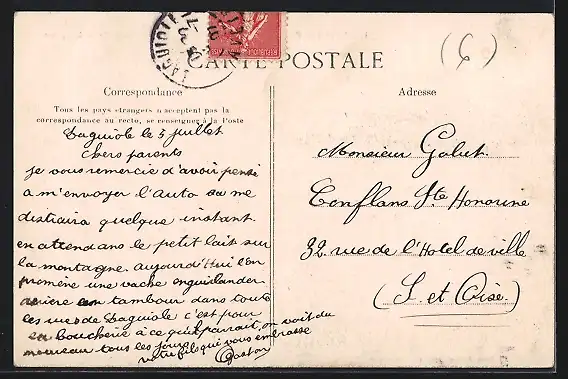 LAGUIOLE
(6)
CARTE POSTALE
Correspondance
Tous les pays étrangers n'acceptent pas la
correspondance au recto, se renseigner à la Poste
Laguiole le 5 juillet
Chers parents
je vous remercie d'avoir pensé
a m'envoyer l'Auto sa me
distraira quelque instant
en attendans le petit lait sur
la montagne. aujourd'Hui l'on
promène une vache enguirlander
deriere un tambour dans toute
les rues de Laguiole c'est pour
la boucherie à ce qu'il parrait, on voit du
nouveau tous les jours
votre fils qui vous embrasse
Gaston
Adresse
Monsieur Galut
Conflans Ste Honorine
32 rue de l'Hotel de ville
(S. et Oise)